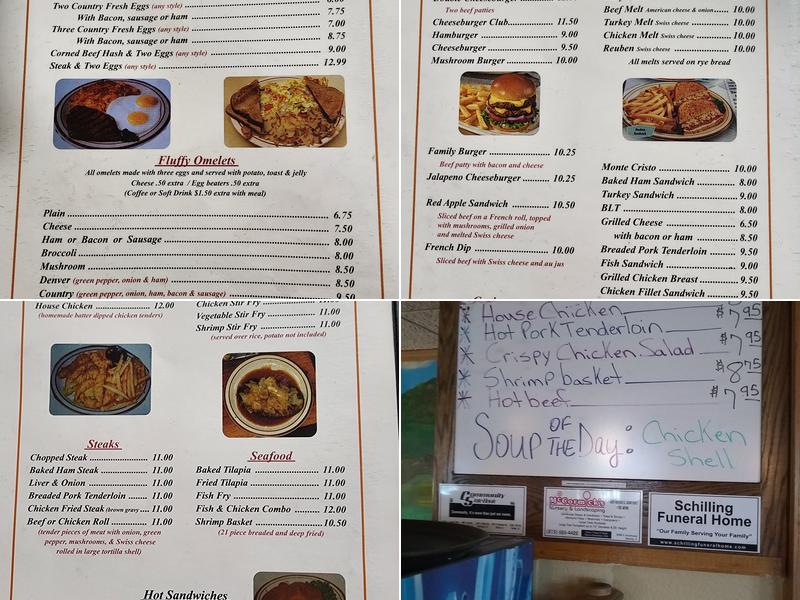 Two Country Fresh Eggs (any style) 7.75
With Bacon, sausage or ham
Three Country Fresh Eggs (any style) 7.00
With Bacon, sausage or ham 8.75
Corned Beef Hash & Two Eggs (any style) 9.00
Steak & Two Eggs (any style) 12.99
Fluffy Omelets
All omelets made with three eggs and served with potato, toast & jelly
Cheese .50 extra / Egg beaters .50 extra
(Coffee or Soft Drink $1.50 extra with meal)
Plain 6.75
Cheese 7.50
Ham or Bacon or Sausage 8.00
Broccoli 8.00
Mushroom 8.50
Denver (green pepper, onion & ham) 8.50
Country (green pepper, onion, ham, bacon & sausage) 9.50
Two beef patties
Cheeseburger Club 11.50
Hamburger 9.00
Cheeseburger 9.50
Mushroom Burger 10.00
Family Burger 10.25
Beef patty with bacon and cheese
Jalapeno Cheeseburger 10.25
Red Apple Sandwich 10.50
Sliced beef on a French roll, topped
with mushrooms, grilled onion
and melted Swiss cheese
French Dip 10.00
Sliced beef with Swiss cheese and au jus
Beef Melt American cheese & onion 10.00
Turkey Melt Swiss cheese 10.00
Chicken Melt Swiss cheese 10.00
Reuben Swiss cheese 10.00
All melts served on rye bread
Monte Cristo 10.00
Baked Ham Sandwich 8.00
Turkey Sandwich 9.00
BLT 8.00
Grilled Cheese 6.50
with bacon or ham 8.50
Breaded Pork Tenderloin 9.50
Fish Sandwich 9.00
Grilled Chicken Breast 9.50
Chicken Fillet Sandwich 9.50
House Chicken 12.00
(homemade batter dipped chicken tenders)
Chicken Stir Fry 11.00
Vegetable Stir Fry 11.00
Shrimp Stir Fry 11.00
(served over rice, potato not included)
Steaks
Chopped Steak 11.00
Baked Ham Steak 11.00
Liver & Onion 11.00
Breaded Pork Tenderloin 11.00
Chicken Fried Steak (brown gravy) 11.00
Beef or Chicken Roll 11.00
(tender pieces of meat with onion, green
pepper, mushrooms, & Swiss cheese
rolled in large tortilla shell)
Seafood
Baked Tilapia 11.00
Fried Tilapia 11.00
Fish Fry 11.00
Fish & Chicken Combo 12.00
Shrimp Basket 10.50
(21 piece breaded and deep fried)
Hot Sandwiches
House Chicken $7.95
Hot Pork Tenderloin
Crispy Chicken Salad $7.95
Shrimp basket $8.75
Hot beef $7.95
Soup OF THE DAY: Chicken
Shell
McCormick's
Nursery & Landscaping
Schilling
Funeral Home
"Our Family Serving Your Family"
www.schillingfuneralhome.com